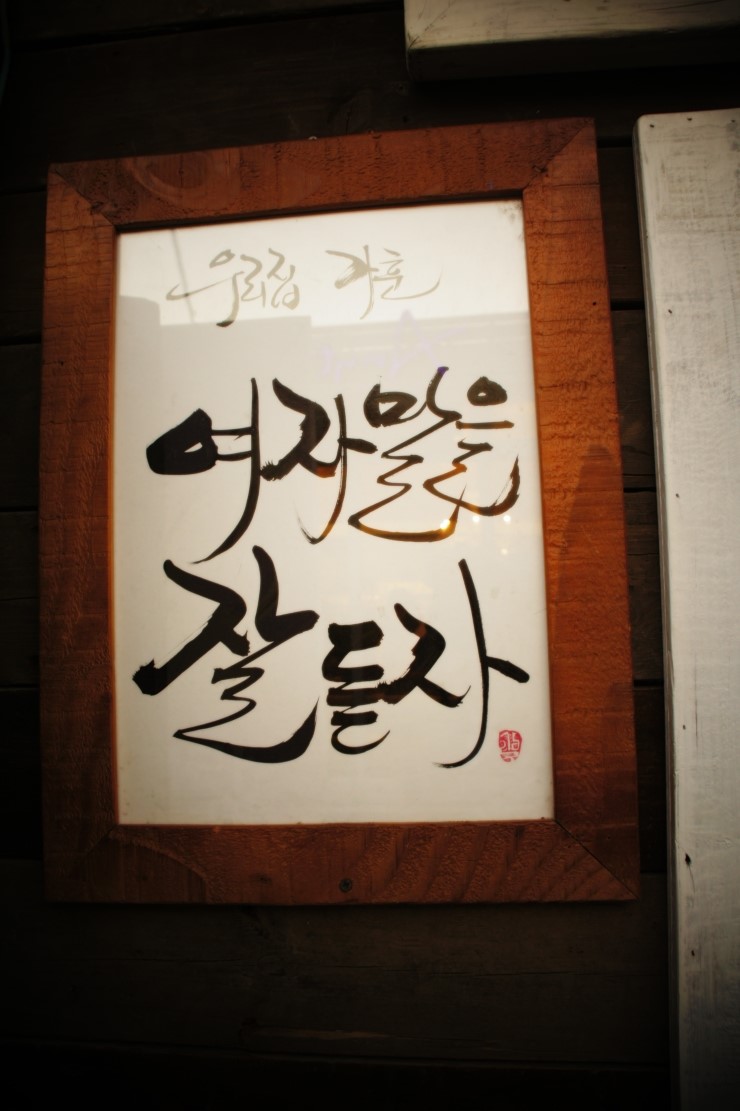 우리집 가훈
여자말을
잘듣자